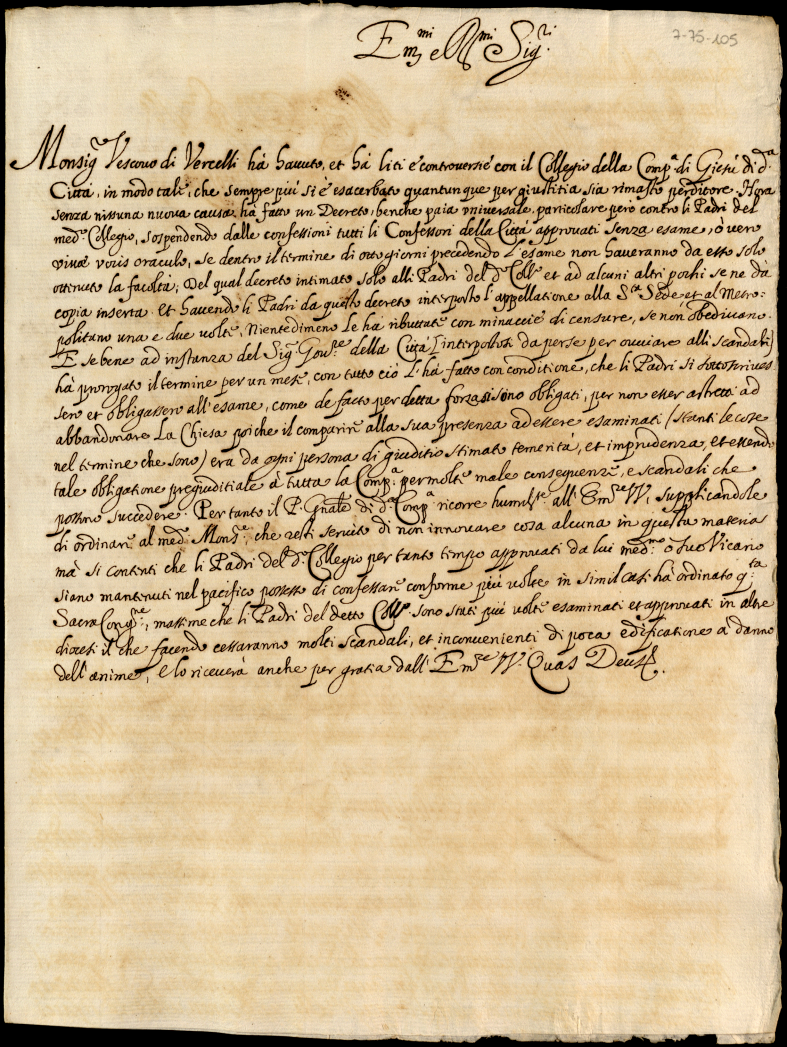 7-75-105
Em.mi e R.mi Sig.ri
Monsig.r Vescovo di Vercelli hà havuto, et hà liti e controversie con il Collegio della Comp.a di Giesù di d.a
Città, in modo tale, che sempre più si è esacerbato quantunque per giustitia sia rimasto perditore. Hora
senza nissuna nuova causa, ha fatto un Decreto, benche paia universale, particolare però contro li Padri del
med.o Collegio, sospendendo dalle confessioni tutti li Confessori della Città approvati senza esame, ò vero
vivæ vocis oraculo, se dentro il termine di otto giorni precedendo l'esame non haveranno da esso solo
ottenuto la facoltà; Del qual decreto intimato solo alli Padri del d.o Coll.o et ad alcuni altri pochi se ne dà
copia inserta. Et havendo li Padri da questo decreto interposto l'appellatione alla S.ta Sede, et al Metro=
politano una e due volte, Nientedimeno le ha ributtate con minaccie di censure, se non obedivano.
E se bene ad instanza del Sig.r Gov.re della Città [interpostosi da perse per ovviare alli scandali]
hà prorogato il termine per un mese, con tutto ciò l'hà fatto con conditione, che li Padri si sottoscrives
sero et obligassero all'esame, come de facto per detta forza si sono obligati, per non esser astretti ad
abbandonare la Chiesa poiche il comparire alla sua presenza ad essere esaminati (stanti le cose
nel termine che sono) era da ogni persona di giuditio stimato temerità, et imprudenza, et essendo
tale obligatione pregiuditiale à tutta la Comp.a per molte male conseguenze, e scandali che
possono succedere. Per tanto il P. Gnale di d.a Comp.a ricorre humilm.te all'Em.ze VV. supplicandole
di ordinare al med.o Mons.re, che resti servito di non innovare cosa alcuna in questa materia
mà si contenti che li Padri del d.o Collegio per tanto tempo approvati da lui med.mo ò suo Vicario
siano mantenuti nel pacifico possesso di confessare conforme più volte in simil casi hà ordinato q.ta
Sacra Cong.ne; massime che li Padri del detto Coll.o sono stati più volte esaminati et approvati in altre
diocesi il che facendo cessaranno molti scandali, et inconvenienti di poca edificatione à danno
dell'anime, E lo riceverà anche per gratia dall'Em.ze VV. Quas Deus &.